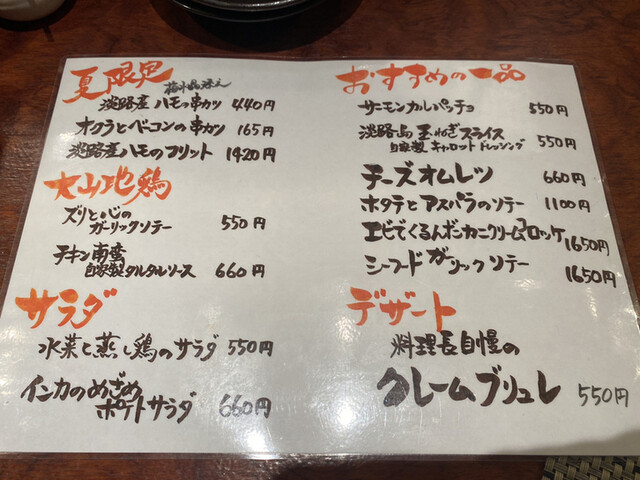 夏限定
淡路産ハモの串カツ 440円
オクラとベーコンの串カツ 165円
淡路産ハモのフリット 1420円
大山地鶏
ズリと心の
ガーリックソテー 550円
チキン南蛮
自家製タルタルソース 660円
サラダ
水菜と蒸し鶏のサラダ 550円
インカのめざめ
ポテトサラダ 660円
おすすめの一品
サーモンカルパッチョ 550円
淡路島玉ねぎスライス
自家製キャロットドレッシング 550円
チーズオムレツ 660円
ホタテとアスパラのソテー 1100円
エビでくるんポンカニクリームコロッケ 1650円
シーフードガーリックソテー 1650円
デザート
料理長自慢の
クレームブリュレ 550円